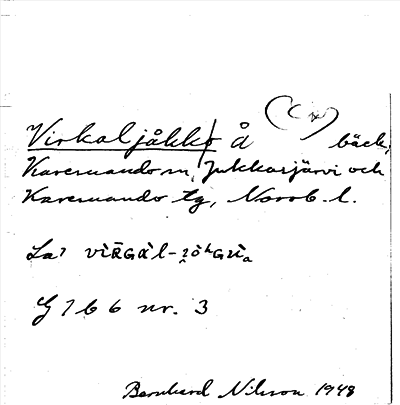 Virkaljåkko å bäck,
Karesuando sn, Jukkasjärvi och
Karesuando tg, Norrb. l.
La7 
G 166 nr. 3
Bernhard Nilsson 1948